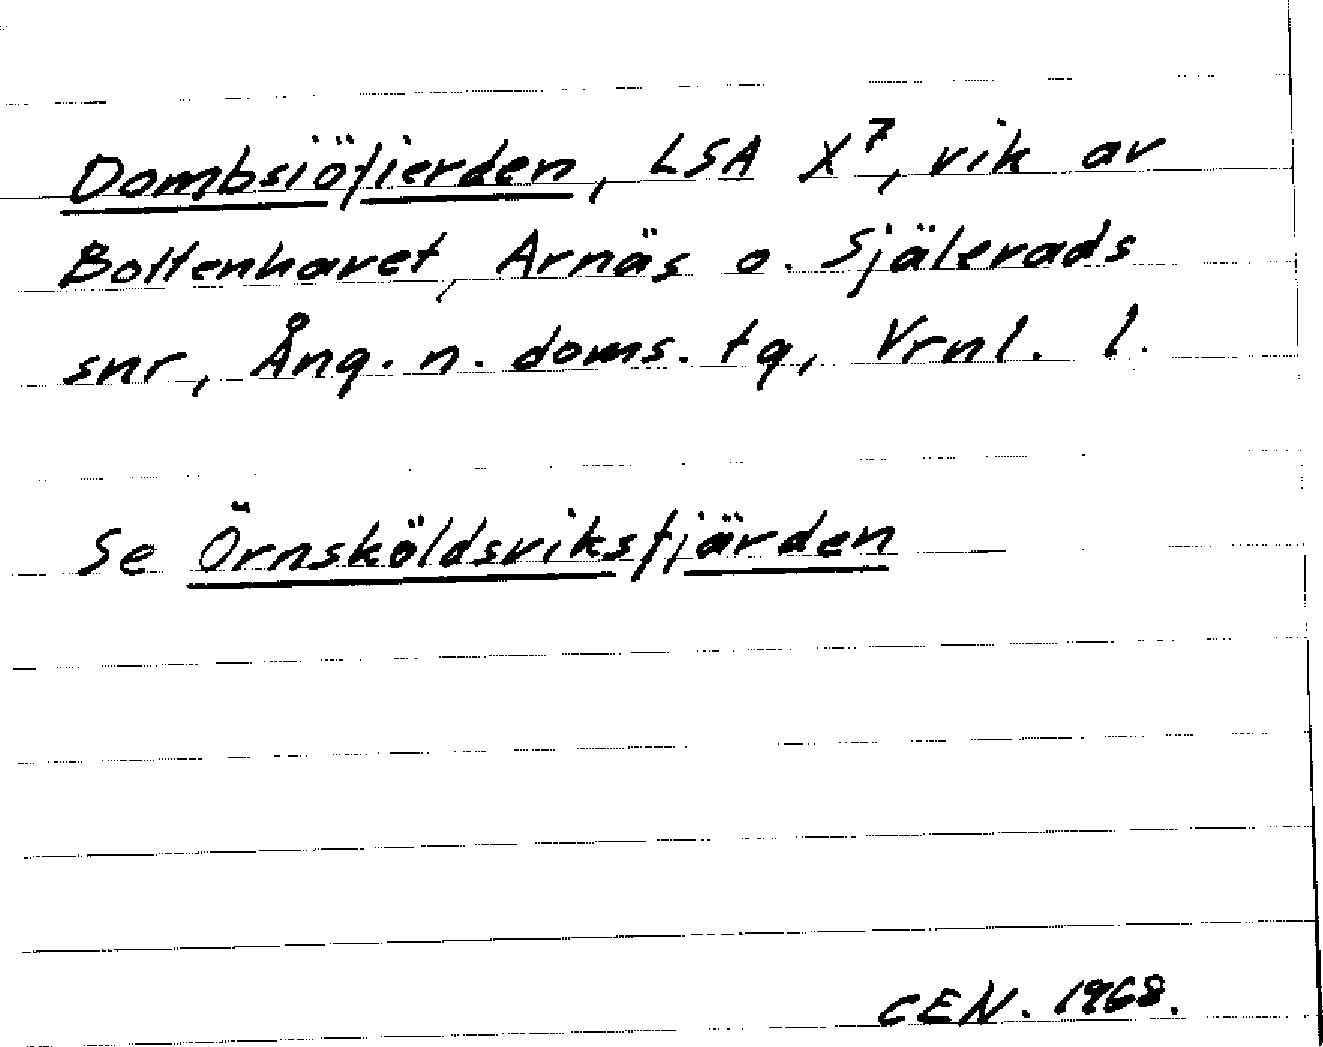 Dombsiöfierden, LSA X⁷, vik av
Bottenhavet, Arnäs o. Själevads
snr, Ång. n. doms. tg, Vrnl. l.
Se Örnsköldsviksfjärden
CEN. 1968.